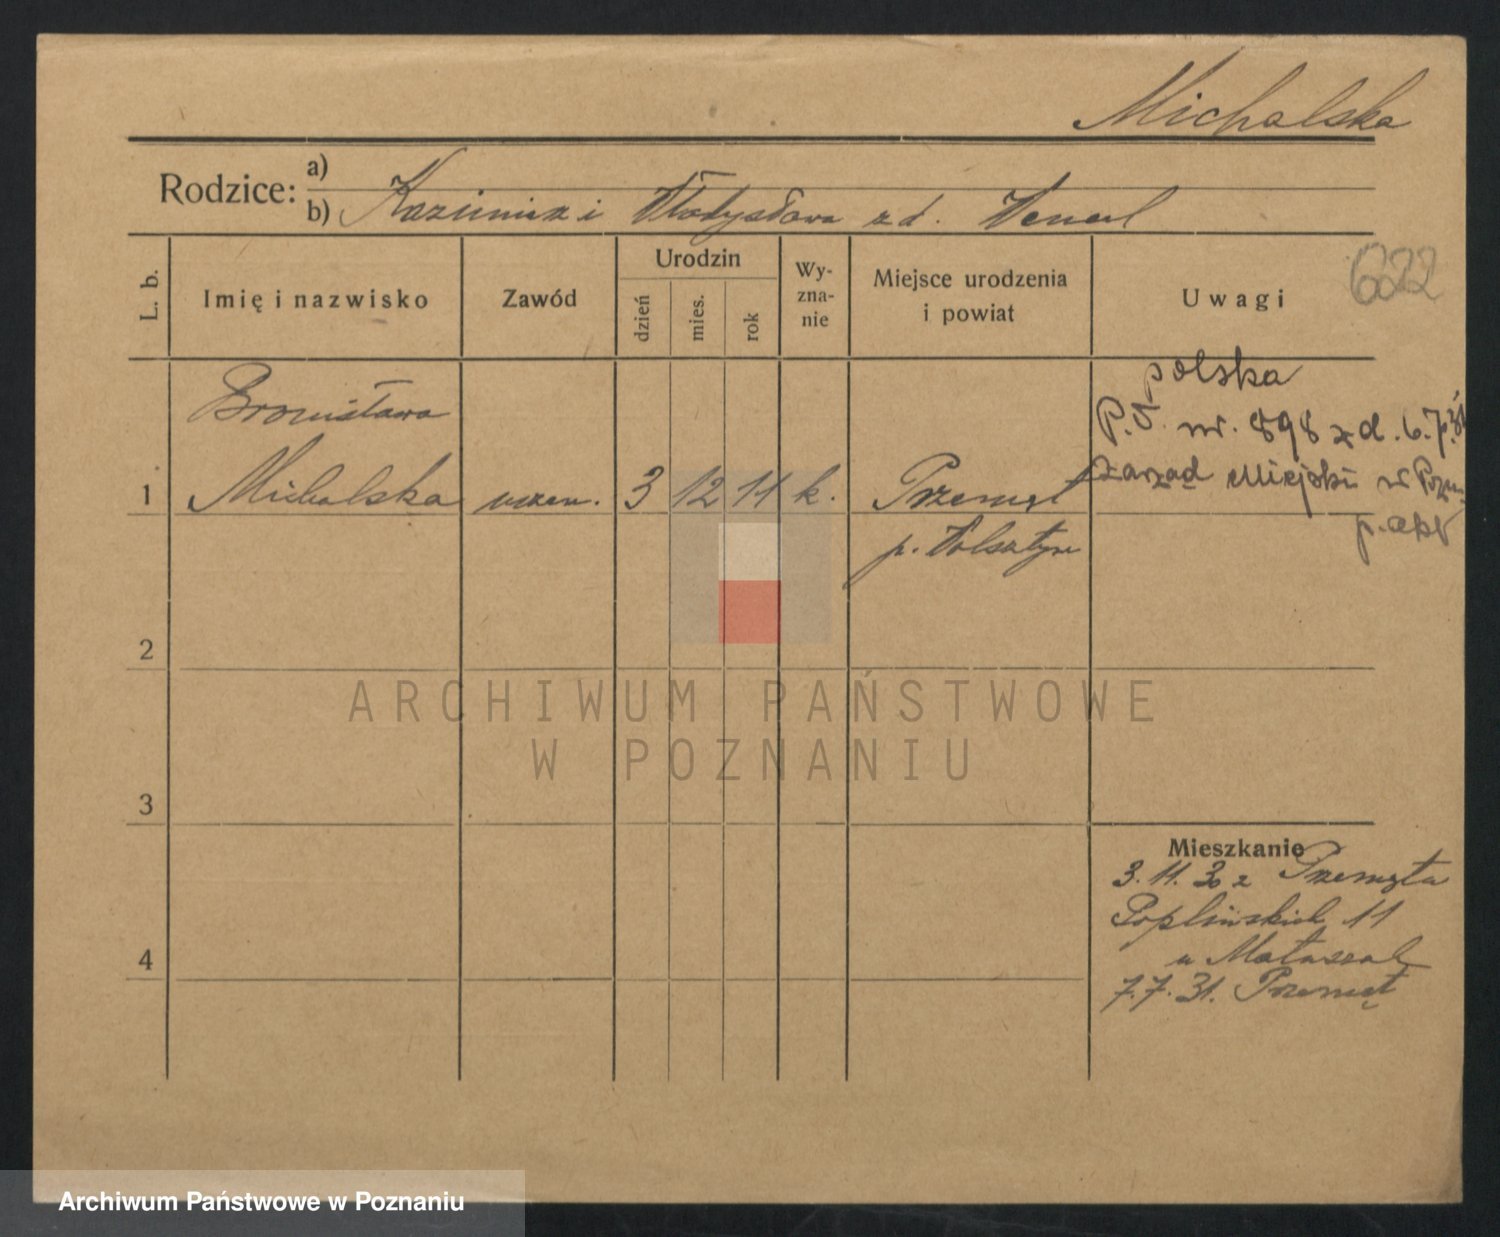 Michalska
Rodzice: a)
b) Kazimierz i Władysława z d. Wencel
L. b.
Imię i nazwisko
Zawód
Urodzin
dzień
mies.
rok
Wy-
zna-
nie
Miejsce urodzenia
i powiat
Uwagi
622
polska
Bronisława
P.O. nr. 898 z d. 6.7.31
Zarząd Miejski w Pozn.
1 Michalska uczen. 3 12 11 k. Przemęt
p.
p. Wolsztyn
2
ARCHIWUM PAŃSTWOWE
W POZNANIU
3
Mieszkanie
3.11.30 z Przemęta
Poplińskich 11
u
4
7.7.31. Przemęt
Archiwum Państwowe w Poznaniu